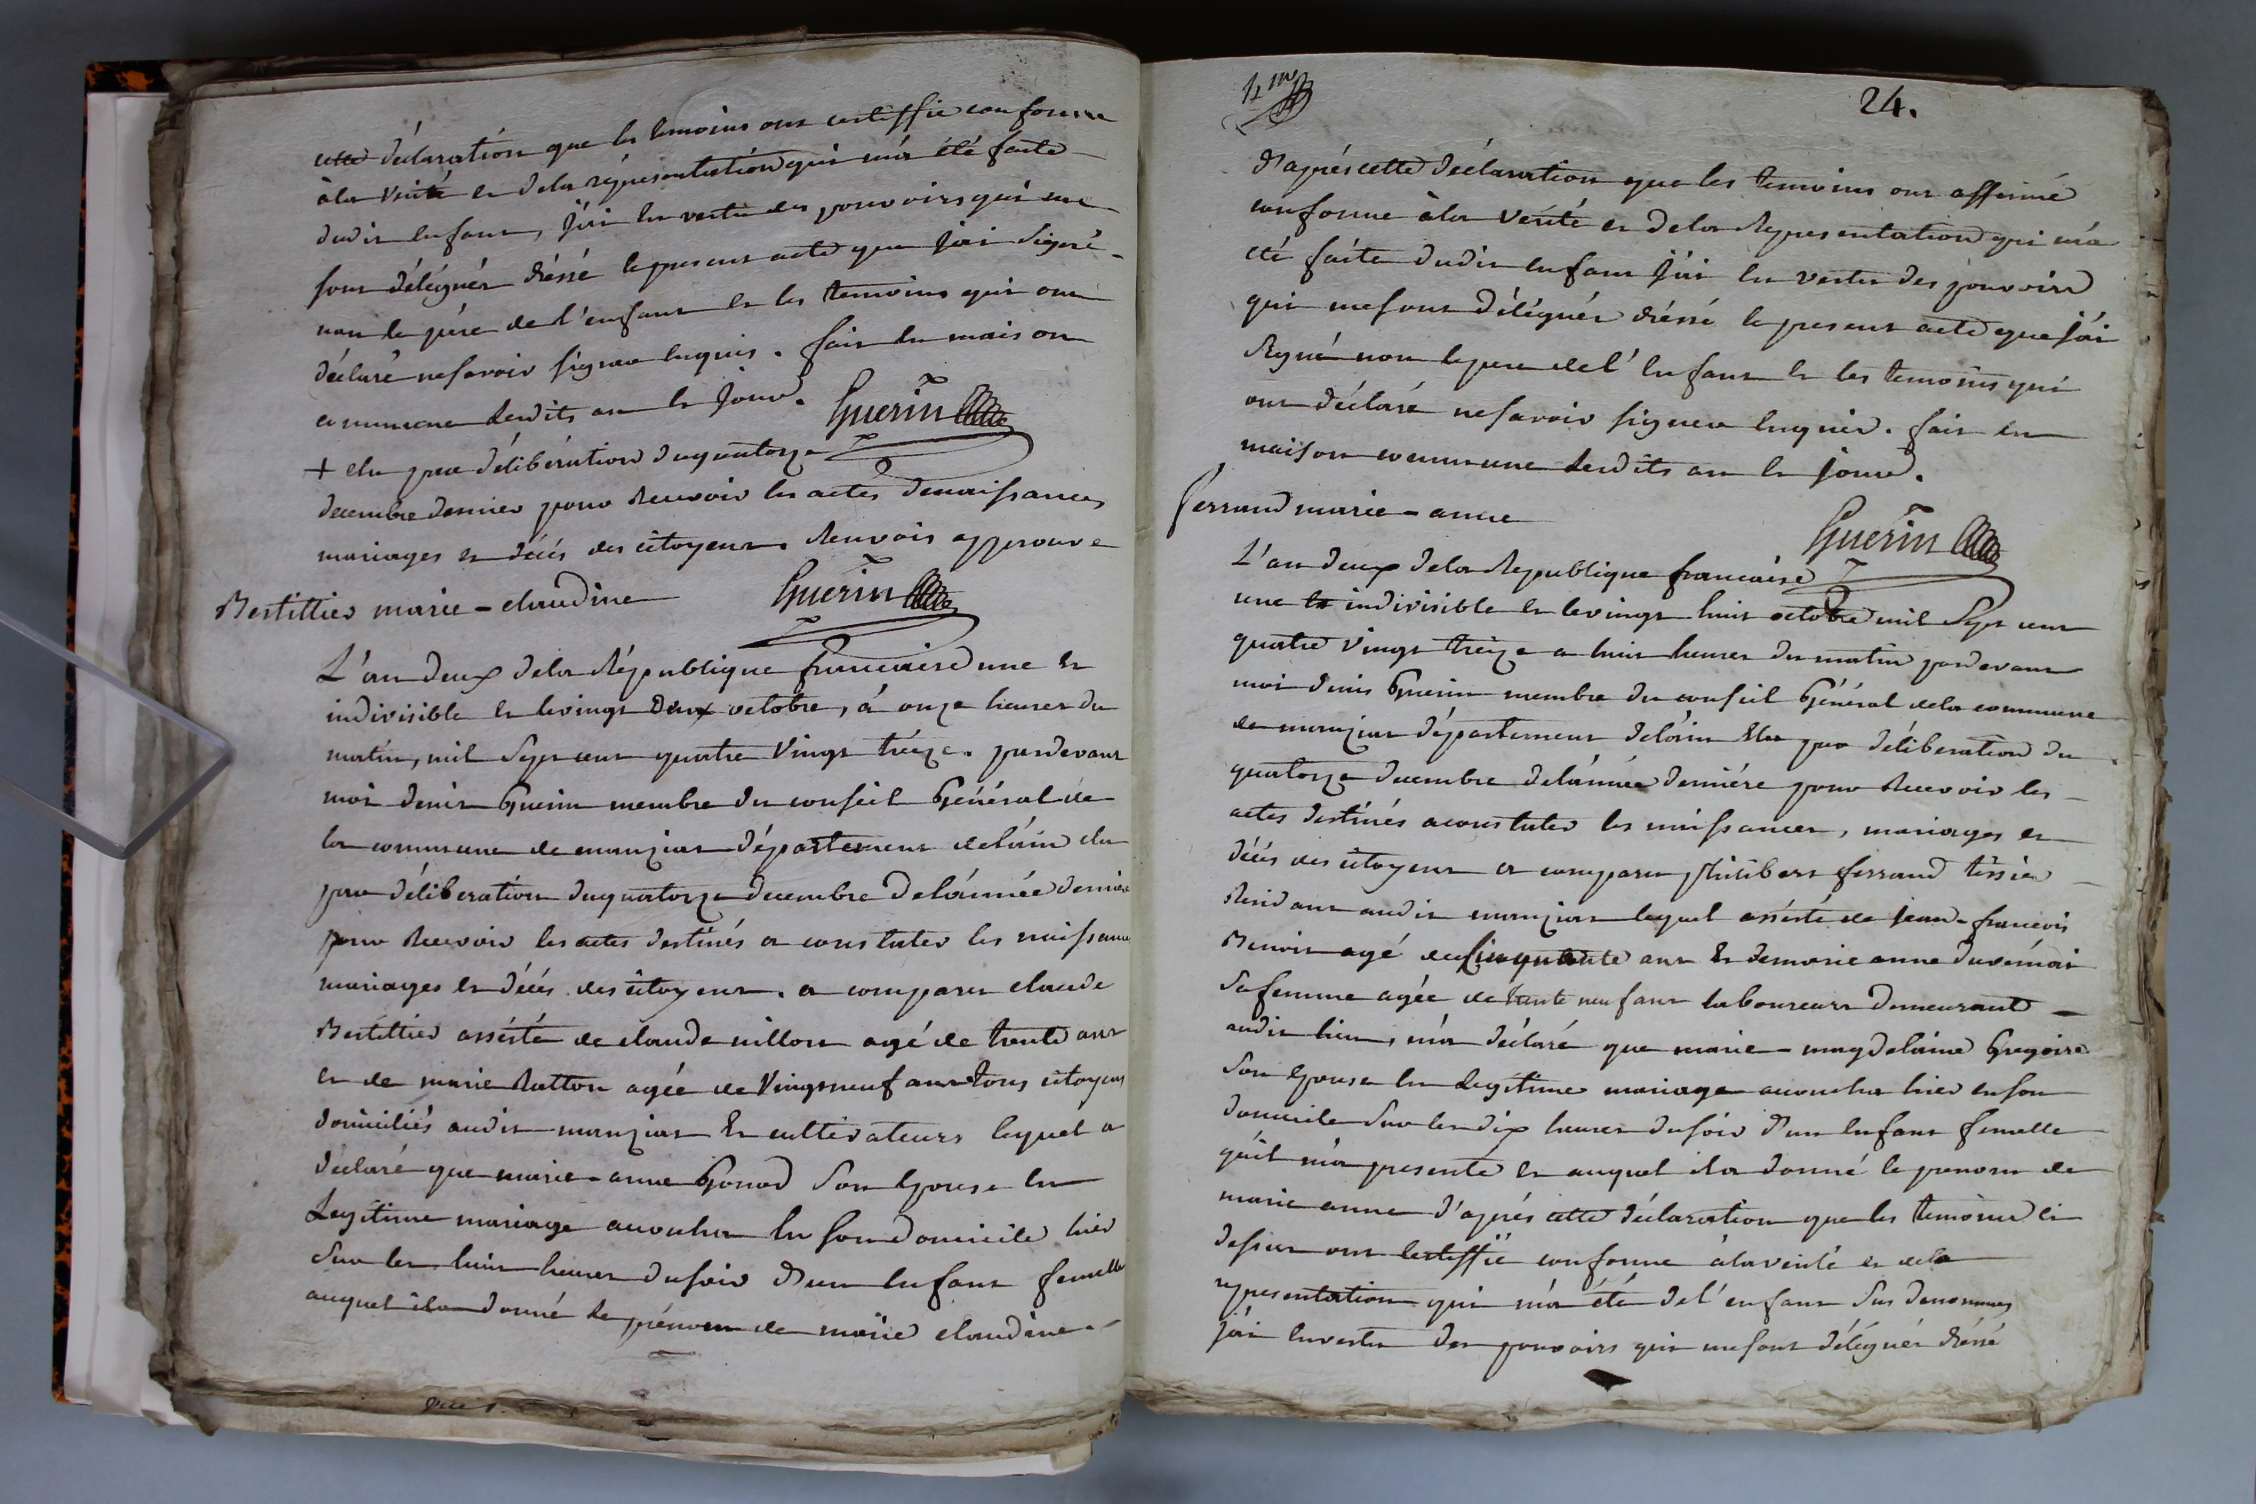 cette déclaration que les temoins ont certiffié conforme
à la vérité et de la réprésentation qui m'a été faite
dudit enfant, j'ai en vertu des pouvoirs qui me
sont délégués dréssé le present acte que j'ai signé
non le père de l'enfant et les temoins qui ont
déclaré ne savoir signer enquis. fait en maison
commune lesdits an et jour.
Guerin
+ élu par délibération du quatorze
decembre dernier pour recevoir les actes de naissances,
mariages et décés des citoyens. Renvois approuvé
Guerin
Bertillier marie-claudine
L'an deux de la République francaise une et
indivisible et le vingt deux octobre, à onze heures du
matin, mil sept cent quatre vingt treize. pardevant
moi denis Guerin membre du conseil Général de
la commune de manziat département de l'ain élu
par délibération du quatorze decembre de l'année derniere
pour recevoir les actes destinés a constater les naissances
mariages et décés des citoyens. a comparu claude
Bertillier assisté de claude millon agé de trente ans
et de marie Ratton agée de vingt neuf ans tous citoyens
domiciliés audit manziat et cultivateurs lequel a
déclaré que marie-anne Gonod son epouse en
Legitime mariage accoucha en son domicile hier
sur les huit heures du soir d'un enfant femelle
auquel il a donné le prénom de marie claudine.
24.
D'aprés cette déclaration que les temoins ont affirmé
conforme à la vérité et de la Représentation qui m'a
été faite dudit enfant j'ai en vertu des pouvoirs
qui me sont délégués dréssé le present acte que j'ai
signé non le pere de l'enfant et les temoins qui
ont déclaré ne savoir signer enquis. fait en
maison commune lesdits an et jour.
Guerin
ferrand marie-anne
L'an deux de la Republique francaise
une et indivisible et le vingt huit octobre mil sept cent
quatre vingt treize a huit heures du matin pardevant
moi denis Guerin membre du conseil Général de la commune
de manziat département de l'ain élu par délibération du
quatorze decembre de l'année derniére pour Recevoir les
actes destinés a constater les naissances, mariages et
décés des citoyens a comparu philibert ferrand tissier
Résidant audit manziat lequel assisté de jean-francois
Benoit agé de cinquante ans et de marie anne
sa femme agée de trente neuf ans laboureurs demeurant
audit lieu, m'a déclaré que marie-magdelaine Gregoire
son epouse en Legitime mariage accoucha hier en son
domicile sur les dix heures du soir d'un enfant femelle
qu'il m'a presenté et auquel il a donné le prenom de
marie anne d'aprés cette déclaration que les temoins ci
dessus ont certiffié conforme à la verité et de la
representation qui m'a été de l'enfant sus denommé
j'ai en vertu des pouvoirs qui me sont délégués dréssé